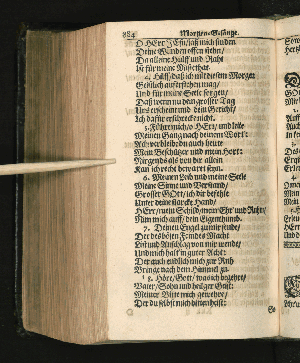 884 Morgen-Gesänge.
O HErr JEsu, laß mich finden
Deine Wunden offen stehn,
Da alleine Hülff und Raht
Ist für meine Missethat.
4. Hilff daß ich mit diesem Morgen
Geistlich auferstehen mag,
Und für meine Seele sorgen,
Daß wenn nu dein grosser Tag
Uns erscheint und dein Gericht,
Ich dafür erschrecke nicht.
5. Führe mich, o HErr, und leite
Meinen Gang nach deinem Wort:
Ach verbleib du auch heute
Mein Beschützer und mein Hort:
Nirgends als von dir allein
Kan ich recht bewahret seyn.
6. Meinen Leib und meine Seele
Meine Sinne und Verstand,
Grosser GOtt, ich dir befehle
Unter deine starcke Hand,
HErr, mein Schild, mein Ehr und Ruhm,
Nim mich auff, dein Eigenthum.
7. Deinen Engel zu mir sende,
Der des bösen Feindes Macht
List und Anschlag von mir wende,
Und mich halt in guter Acht:
Der auch endlich mich zur Ruh
Bringe nach dem Himmel zu.
8. Höre, Gott, was ich begehre,
Vater, Sohn und heilger Geist:
Meiner Bitte mich gewehre,
Der du selbst mich bitten heist:
So